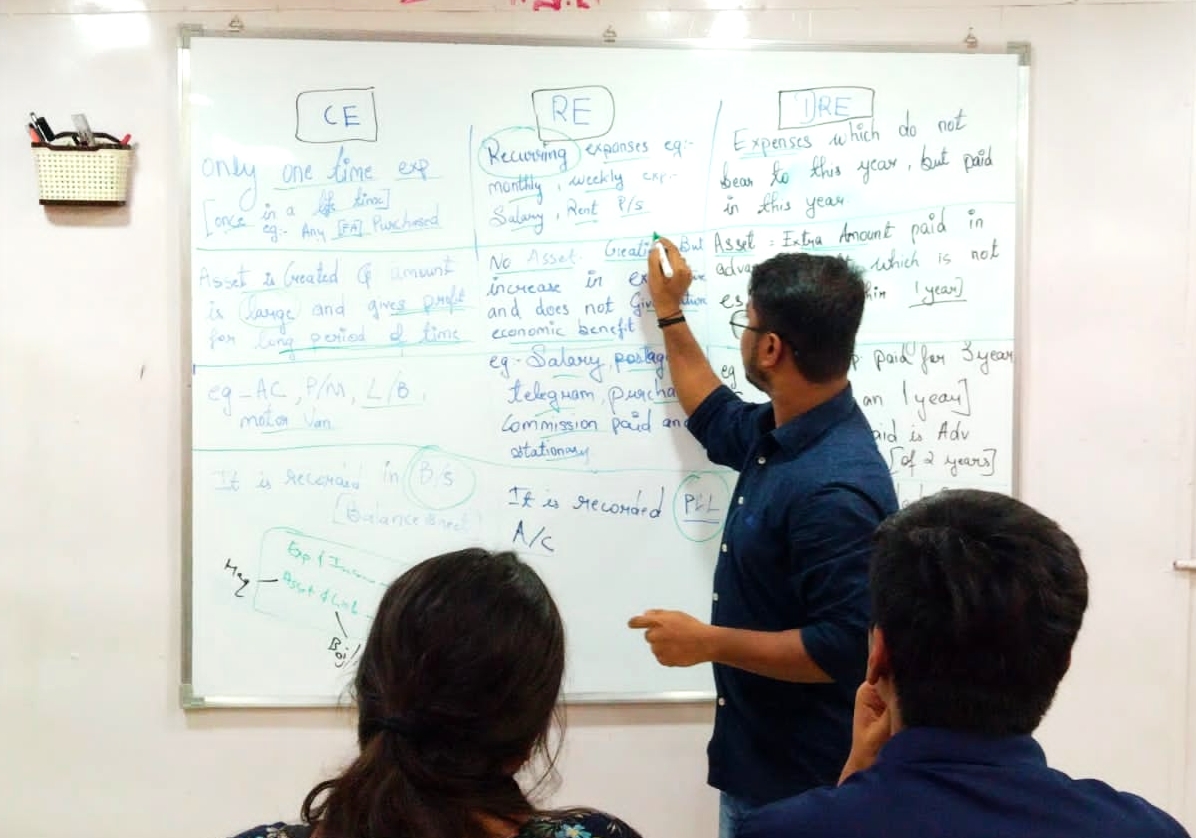 CE
only one time exp
[once in a life time]
eg:- Any [FA] Purchased
Asset is Created & amount
is large and gives profit
for long period of time
eg - AC, P/M, L/B,
motor van
It is recorded in B/S
[Balance sheet]
Exp &
Asset &
RE
Recurring expanses eg:-
monthly, weekly exp:-
Salary, Rent P/S
No Asset. But
increase in
and does not
economic benefit
eg:- Salary,
telegram,
Commission paid and
stationary
It is recorded P&L
A/c
DRE
Expenses which do not
bear to this year, but paid
in this year
Asset = Extra Amount paid in
which is not
1 year)
eg paid for 3 year
an 1 year]
is Adv
[of 2 years]